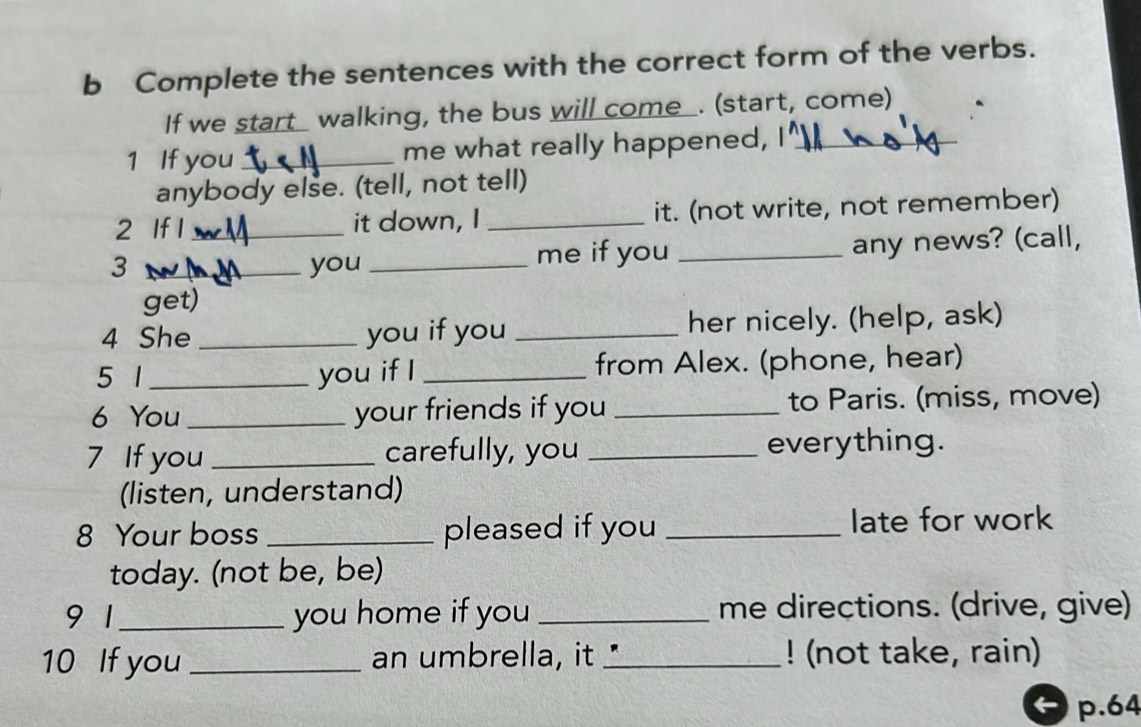 b Complete the sentences with the correct form of the verbs.
If we start walking, the bus will come. (start, come)
1 If you tell me what really happened, I 'll
anybody else. (tell, not tell)
2 If I ________ it down, I ________ it. (not write, not remember)
3 ________ you ________ me if you ________ any news? (call,
get)
4 She ________ you if you ________ her nicely. (help, ask)
5 I ________ you if I ________ from Alex. (phone, hear)
6 You ________ your friends if you ________ to Paris. (miss, move)
7 If you ________ carefully, you ________ everything.
(listen, understand)
8 Your boss ________ pleased if you ________ late for work
today. (not be, be)
9 I ________ you home if you ________ me directions. (drive, give)
10 If you ________ an umbrella, it ________! (not take, rain)
← p.64